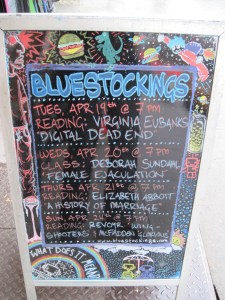 BLUESTOCKINGS
TUES, APR 19th @ 7 PM
READING: VIRGINIA EUBANKS
"DIGITAL DEAD END"
WEDS, APR 20th @ 7 PM
CLASS: DEBORAH SUNDAHL
"FEMALE EJACULATION"
THURS, APR 21st @ 7 PM
READING: ELIZABETH ABBOTT
"A HISTORY OF MARRIAGE"
SUN, APR 24th @ 7 PM
READING:
www.bluestockings.com
WHAT DOES IT MEAN